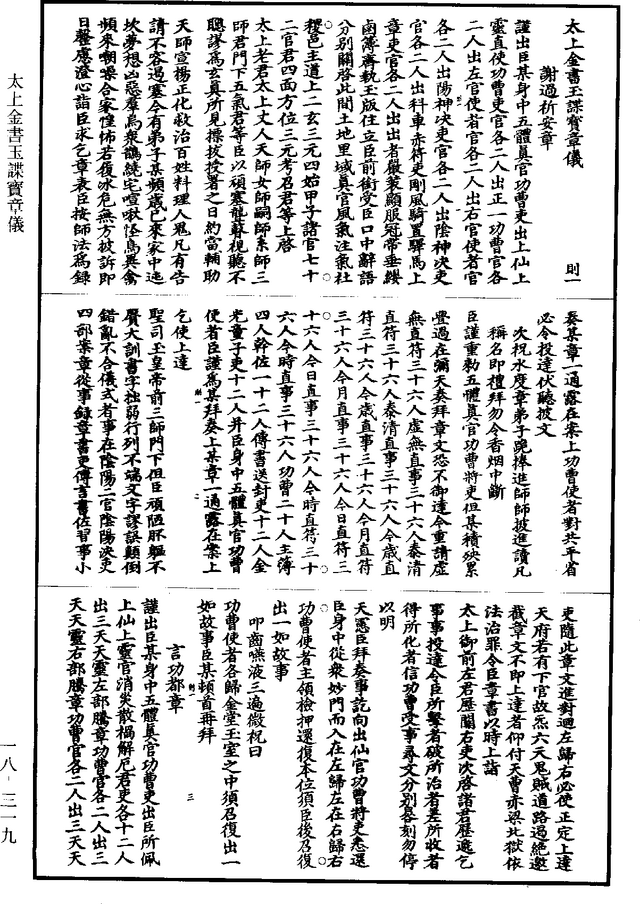 太上金書玉諜寶章儀
則一
謝過祈安章
謹出臣某身中五體真官功曹吏出上仙上
靈直使功曹吏官各二人出正一功曹官各
二人出左官使者官各二人出右官使者官
各二人出陽神決吏官各二人出陰神決吏
官各二人出科車赤符吏剛風騎置驛馬上
章吏官各二人出出者嚴裝顯服冠帶垂纓
鹵簿齊執玉版住立臣前銜受臣口中辭語
分別關啓此間土地里域真官風氣注氣社
稷邑主道上二玄三元四始甲子諸官七十
二官君四面方位三元考召君等上啓
太上老君太上丈人天師女師嗣師系師三
師君門下五氣君等臣以頑塞龍聾視聽不
聰謬爲玄真所見採拔授署之日約當輔助
天師宣揚正化救治百姓料理人鬼凡有告
請不容過塞今有弟子某頻歲已來家中迍
坎夢想凶惡羣烏衆鵲繞宅喧啾怪鳥異禽
頻來嘲噪合家惶怖若復冰危無方披訴即
日罄慮澄心詣臣求乞章表臣按師法爲錄
奏某章一通露在案上功曹使者對共平省
必令投達伏聽披文
次祝水度章弟子跪捧進師師披進讀凡
稱名即禮拜勿令香烟中斷
臣謹重勑五體真官功曹將吏但某積殃累
亹過在彌天奏拜章文恐不御達今重請虛
無直符三十六人虛無直事三十六人泰清
直符三十六人泰清直事三十六人今歲直
符三十六人今歲直事三十六人今月直符
三十六人今月直事三十六人今日直符三
十六人今日直事三十六人今時直符三十
六人今時直事三十六人功曹二十人主簿
四人幹佐一十二人傳書送封吏十二人金
光童子吏十二人并臣身中五體真官功曹
使者臣謹爲某拜奏上某章一通露在案上
乞使上達
聖司玉皇帝前三師門下但臣頑陋胙軀不
屬大訓書字拙弱行列不端文字謬誤顛倒
錯亂不合儀式者事在陰陽二官陰陽決吏
四部案章從事録章書吏傳言書佐習事小
吏隨此章文進對廻左歸右必使正定上達
天府若有下官故炁六天鬼賊道路遏絶邀
截章文不即上達者仰付天曹赤梁北獄依
法治罪令臣章書以時上詣
太上御前左君歷關右吏次啓諸君歷遞乞
事事投達令臣所擊者破所治者差所收者
得所化者信功曹受事尋文分別晷刻勿停
以明
天憲臣拜奏事訖向出仙官功曹將吏悉還
臣身中從衆妙門而入在左歸左在右歸右
功曹使者主領檢押還復本位須臣後召復
出一如故事
叩齒嚥液三過微祝曰
功曹使者各歸金堂玉室之中須召復出一
如故事臣某頓首再拜
言功都章
謹出臣某身中五體真官功曹吏出臣所佩
上仙上靈官消災散禍解厄君吏各十二人
出三天天靈左部騰章功曹官各二人出三
天天靈右部騰章功曹官各二人出三天天
太上金書玉諜寶章儀
一八-三一九